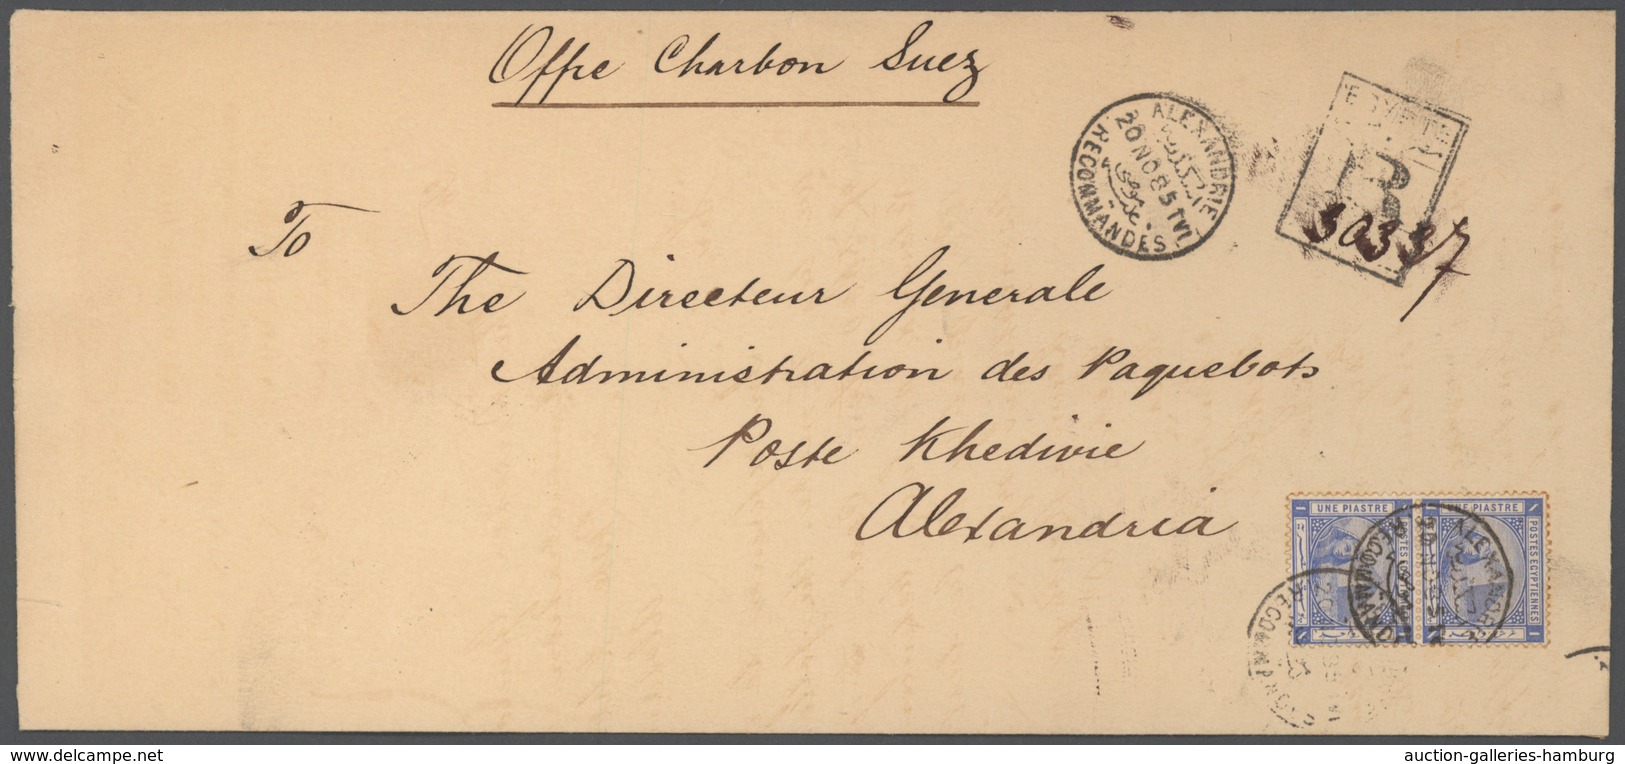 Offre Charbon Suez
ALEXANDRIE
20 NO 85 TVI
RECOMMANDES
R
30337
To
The Directeur Generale
Administration des Paquebots
Poste Khedivie
Alexandria
UNE PIASTRE
UNE PIASTRE
POSTES EGYPTIENNES
delcampe.net
auction-galleries-hamburg